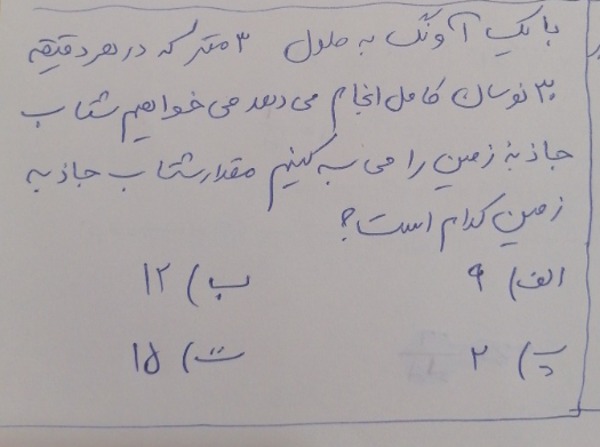 با یک آونگ به طول ۳ متر که در هر دقیقه
۳۰ نوسان کامل انجام می دهد می خواهیم شتاب
جاذبه زمین را محاسبه کنیم مقدار شتاب جاذبه
زمین کدام است؟
الف) ۹ ب) ۱۲
پ) ۲ ت) ۱۵